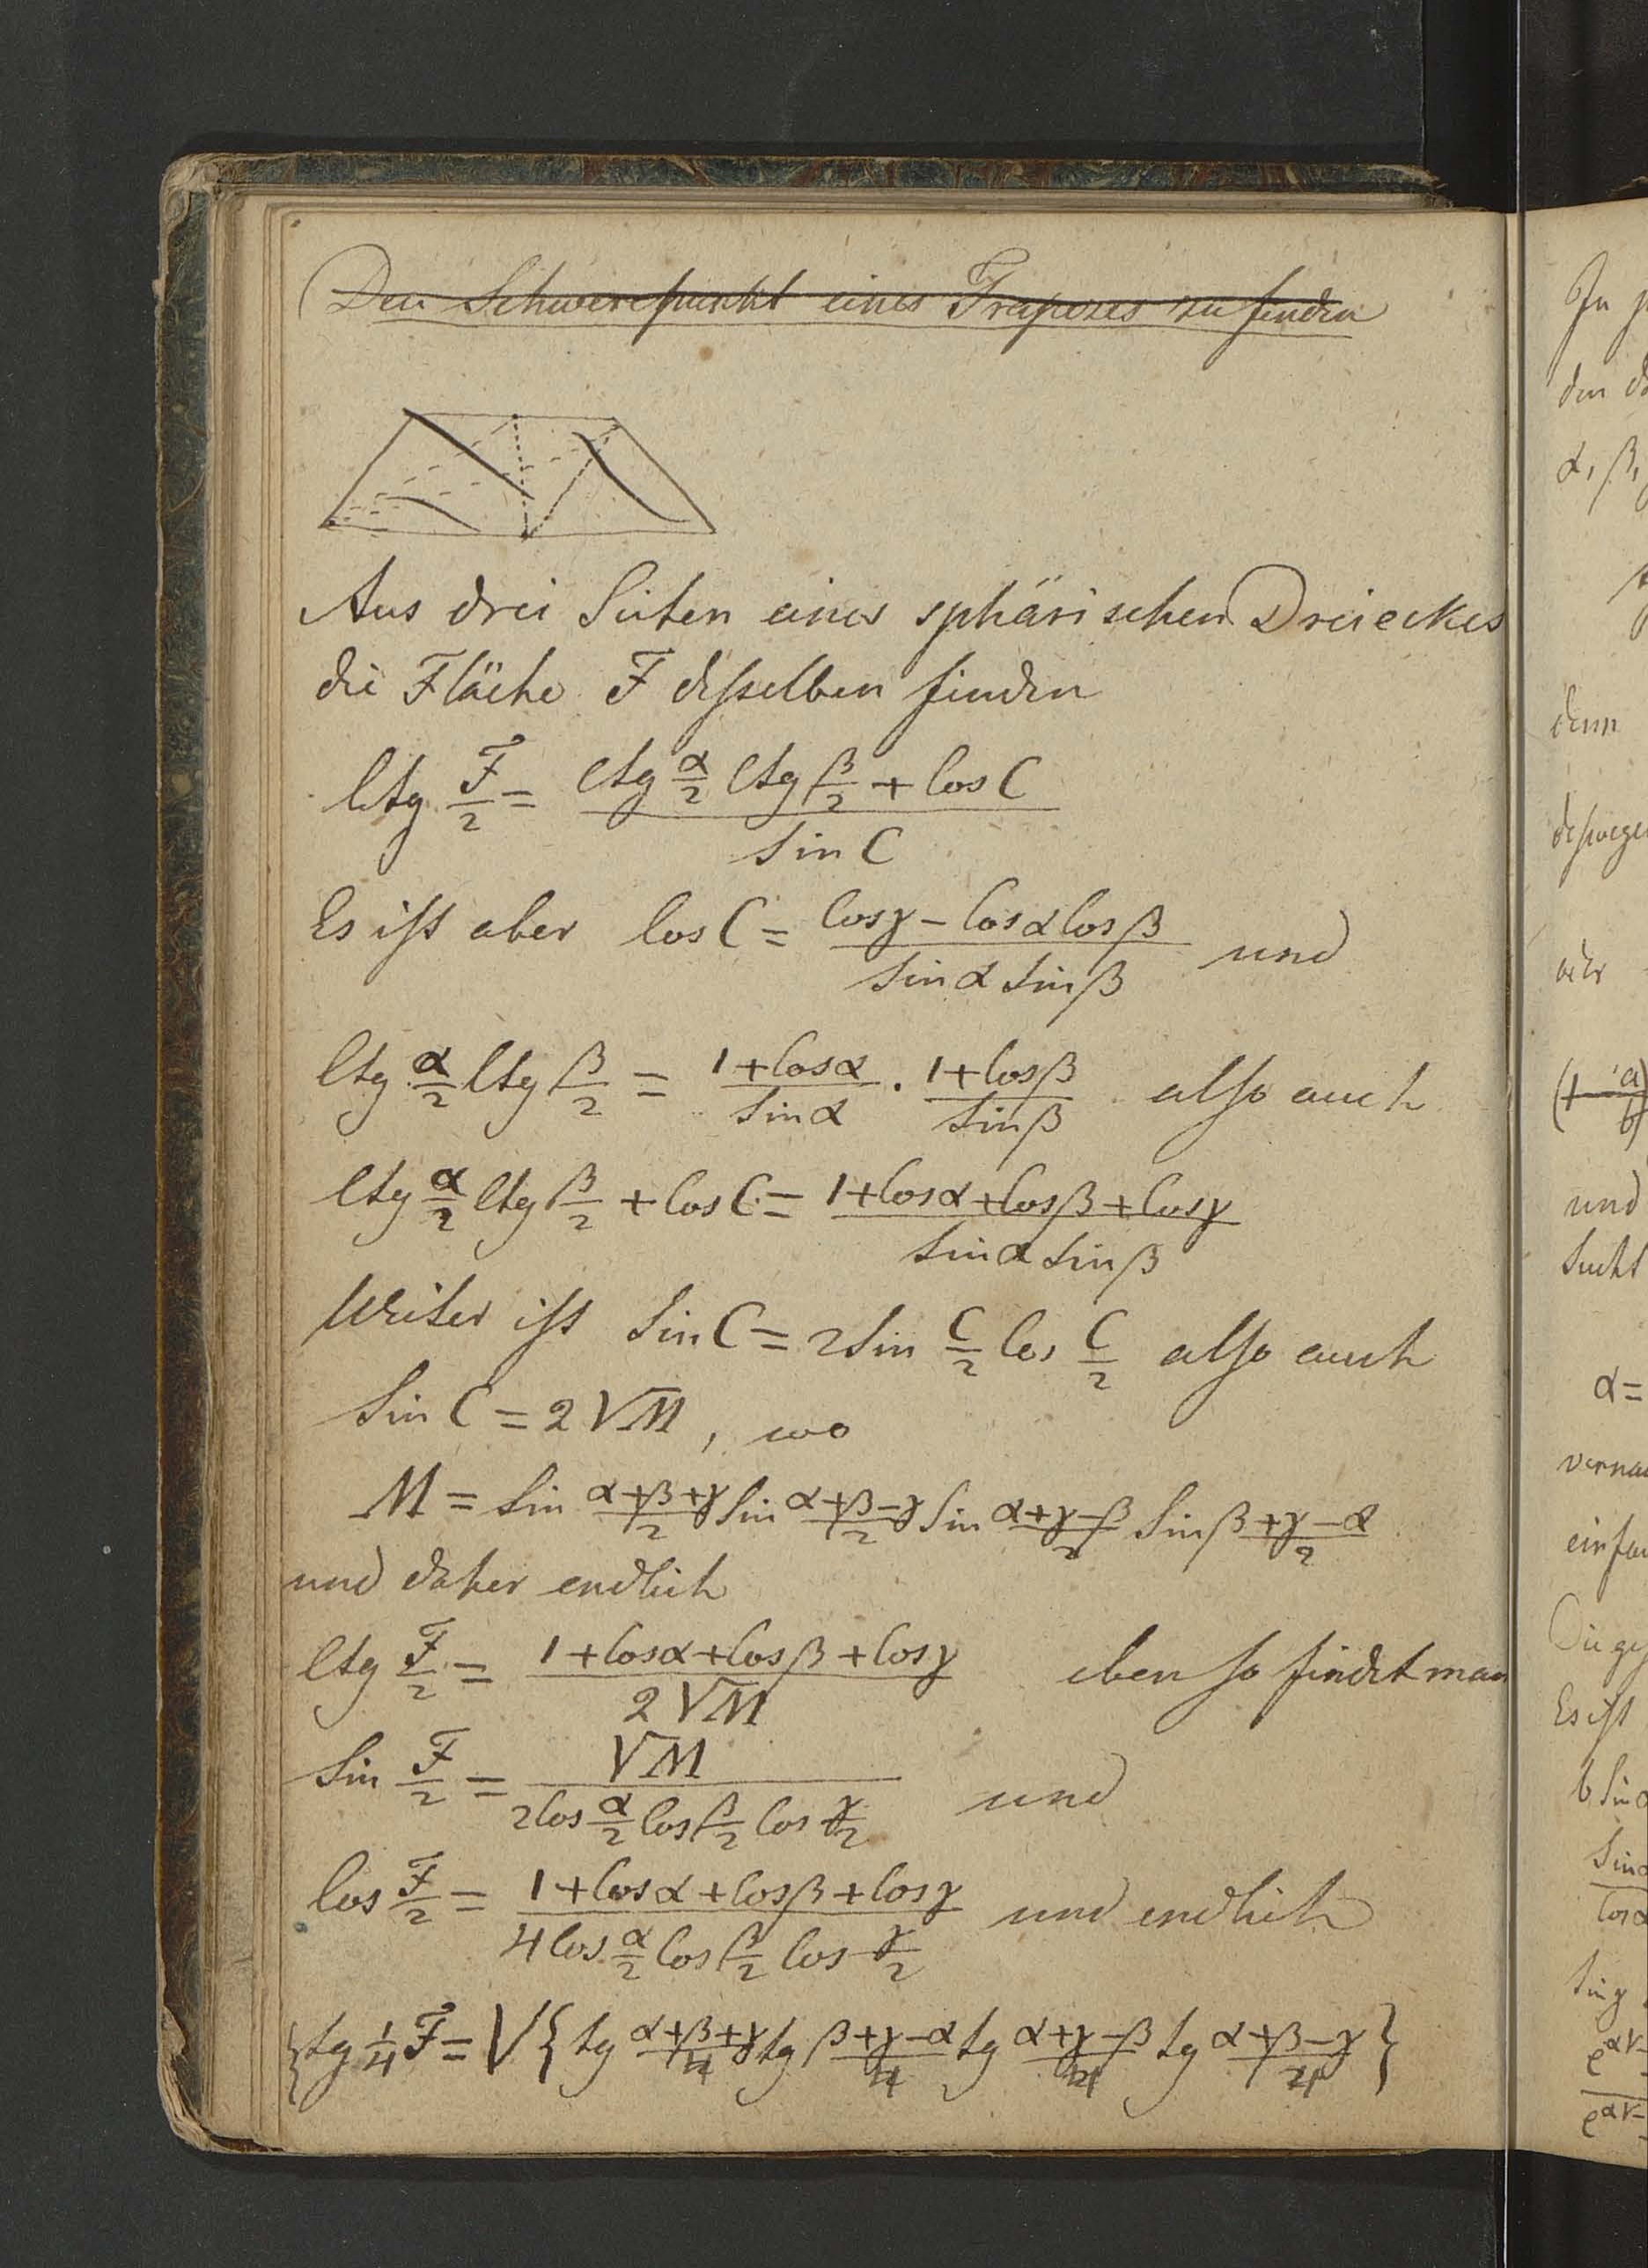 Den Schwerepunkt eines Trapezes zu finden
Aus drei Seiten eines sphärischen Dreieckes
die Fläche F desselben finden
Ctg F/2 = (Ctg α/2 Ctg β/2 + Cos C) / Sin C
Es ist aber Cos C = (Cosγ – Cosα Cosβ) / (Sinα Sinβ) und
Ctg α/2 Ctg β/2 = (1+Cosα)/Sinα . (1+Cosβ)/Sinβ also auch
Ctg α/2 Ctg β/2 + Cos C = (1+Cosα+Cosβ+Cosγ) / (Sinα Sinβ)
Weiter ist Sin C = 2 Sin C/2 Cos C/2 also auch
Sin C = 2√M, wo
M = Sin (α+β+γ)/2 Sin (α+β–γ)/2 Sin (α+γ–β)/2 Sin (β+γ–α)/2
und daher endlich
Ctg F/2 = (1+Cosα+Cosβ+Cosγ) / 2√M eben so findet man
Sin F/2 = √M / (2Cos α/2 Cos β/2 Cos γ/2) und
Cos F/2 = (1+Cosα+Cosβ+Cosγ) / (4Cos α/2 Cos β/2 Cos γ/2) und endlich
{tg ¼F = √{tg (α+β+γ)/4 tg (β+γ–α)/4 tg (α+γ–β)/4 tg (α+β–γ)/4}
In
den
α, β,
denn
deswegen
oder
und
Sucht
α=
einfa
Es ist
b Sin α
Sin α
Cos α